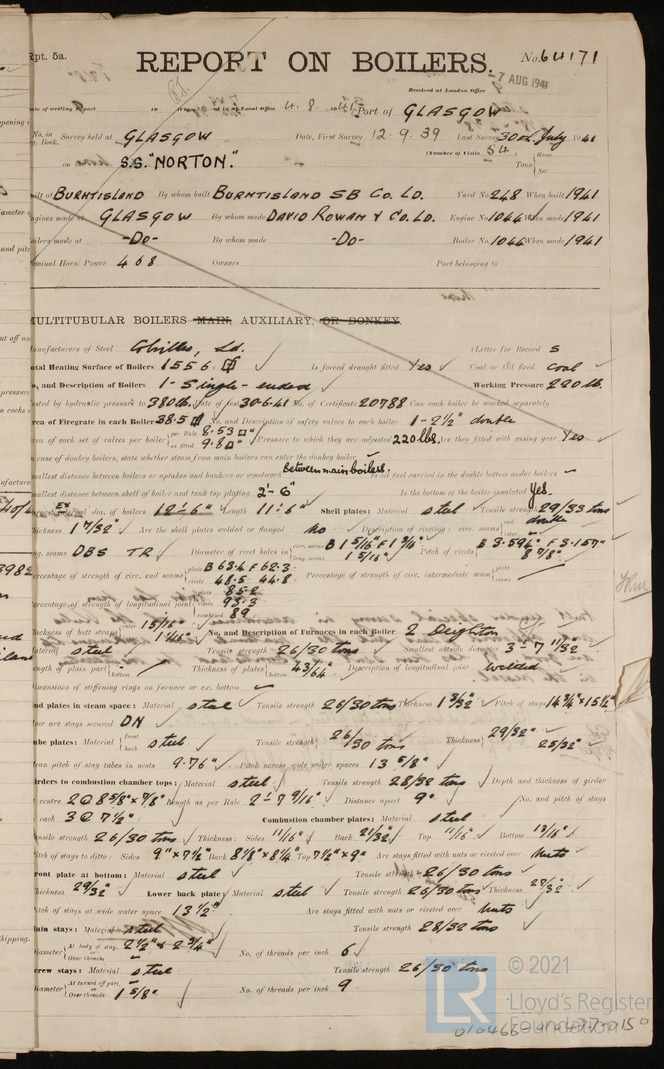 Rpt. 5a.
REPORT ON BOILERS.
No. 64171
Received at London Office
7 AUG 1941
Date of writing Report 19 When handed in at Local Office 4.8.1941 Port of GLASGOW
No. in Survey held at GLASGOW Date, First Survey 12.9.39 Last Survey 30th July 1941
Reg. Book.
on the S.S. "NORTON." (Number of Visits 54) Tons Gross Net
Built at BURNTISLAND By whom built BURNTISLAND S B CO. LD. Yard No. 248 When built 1941
Engines made at GLASGOW By whom made DAVID ROWAN & CO. LD. Engine No. 1044 When made 1941
Boilers made at -Do- By whom made -Do- Boiler No. 1044 When made 1941
Nominal Horse Power 468 Owners Port belonging to
MULTITUBULAR BOILERS MAIN, AUXILIARY, OR DONKEY.
Manufacturers of Steel Colvilles, Ld. (Letter for Record S
Total Heating Surface of Boilers 1556 Is forced draught fitted Yes Coal or Oil fired coal
No. and Description of Boilers 1 - Single-ended Working Pressure 220 lb.
Tested by hydraulic pressure to 380 lb. Date of test 30.6.41 No. of Certificate 20788 Can each boiler be worked separately
Area of Firegrate in each Boiler 38.5 No. and Description of safety valves to each boiler 1 - 2½" double
Area of each set of valves per boiler per Rule 8.53 as fitted 9.8 Pressure to which they are adjusted 220 lbs. Are they fitted with easing gear Yes
In case of donkey boilers, state whether steam from main boilers can enter the donkey boiler
Smallest distance between boilers or uptakes and bunkers or woodwork Between main boilers. Is oil fuel carried in the double bottom under boilers
Smallest distance between shell of boiler and tank top plating 2'-6" Is the bottom of the boiler insulated Yes.
Largest internal dia. of boilers 12'-6" Length 11'-6" Shell plates: Material steel Tensile strength 29/33 tons
Thickness 1 7/32" Are the shell plates welded or flanged no Description of riveting: circ. seams end double inter.
long. seams DBS TR Diameter of rivet holes in circ. seams B 1 5/16" F 1 3/16" long. seams 1 5/16" Pitch of rivets B 3.596" F 3.157" 8 7/8"
Percentage of strength of circ. end seams plate B 63.4 F 62.3 rivets 48.5 44.8 Percentage of strength of circ. intermediate seam plate rivets
Percentage of strength of longitudinal joint plate 85.2 rivets 93.3 combined 89
Thickness of butt straps outer 15/16" inner 1 1/16" No. and Description of Furnaces in each Boiler 2 Deighton
Material steel Tensile strength 26/30 tons Smallest outside diameter 3'-7 11/32"
Length of plain part top bottom Thickness of plates bottom 43/64" Description of longitudinal joint welded
Dimensions of stiffening rings on furnace or c.c. bottom
End plates in steam space: Material steel Tensile strength 26/30 tons Thickness 1 3/32" Pitch of stays 14¾" x 15½"
How are stays secured DN
Tube plates: Material front back steel Tensile strength 26/30 tons Thickness 29/32" 25/32"
Mean pitch of stay tubes in nests 9.76" Pitch across wide water spaces 13 5/8"
Girders to combustion chamber tops: Material steel Tensile strength 28/32 tons Depth and thickness of girder
at centre 2 @ 8 5/8" x 7/8" Length as per Rule 2'-7 9/16" Distance apart 9" No. and pitch of stays
in each 3 @ 7½" Combustion chamber plates: Material steel
Tensile strength 26/30 tons Thickness: Sides 11/16" Back 21/32" Top 11/16" Bottom 13/16"
Pitch of stays to ditto: Sides 9" x 7½" Back 8 1/8" x 8¼" Top 7½" x 9" Are stays fitted with nuts or riveted over Nuts
Front plate at bottom: Material steel Tensile strength 26/30 tons
Thickness 29/32" Lower back plate: Material steel Tensile strength 26/30 tons Thickness 27/32"
Pitch of stays at wide water space 13½" Are stays fitted with nuts or riveted over Nuts
Main stays: Material steel Tensile strength 28/32 tons
Diameter At body of stay, or Over threads 2½" & 2¾" No. of threads per inch 6
Screw stays: Material steel Tensile strength 26/30 tons
Diameter At turned off part, or Over threads 1 5/8" No. of threads per inch 9
LR © 2021
Lloyd's Register
Foundation
010466-010477-0150